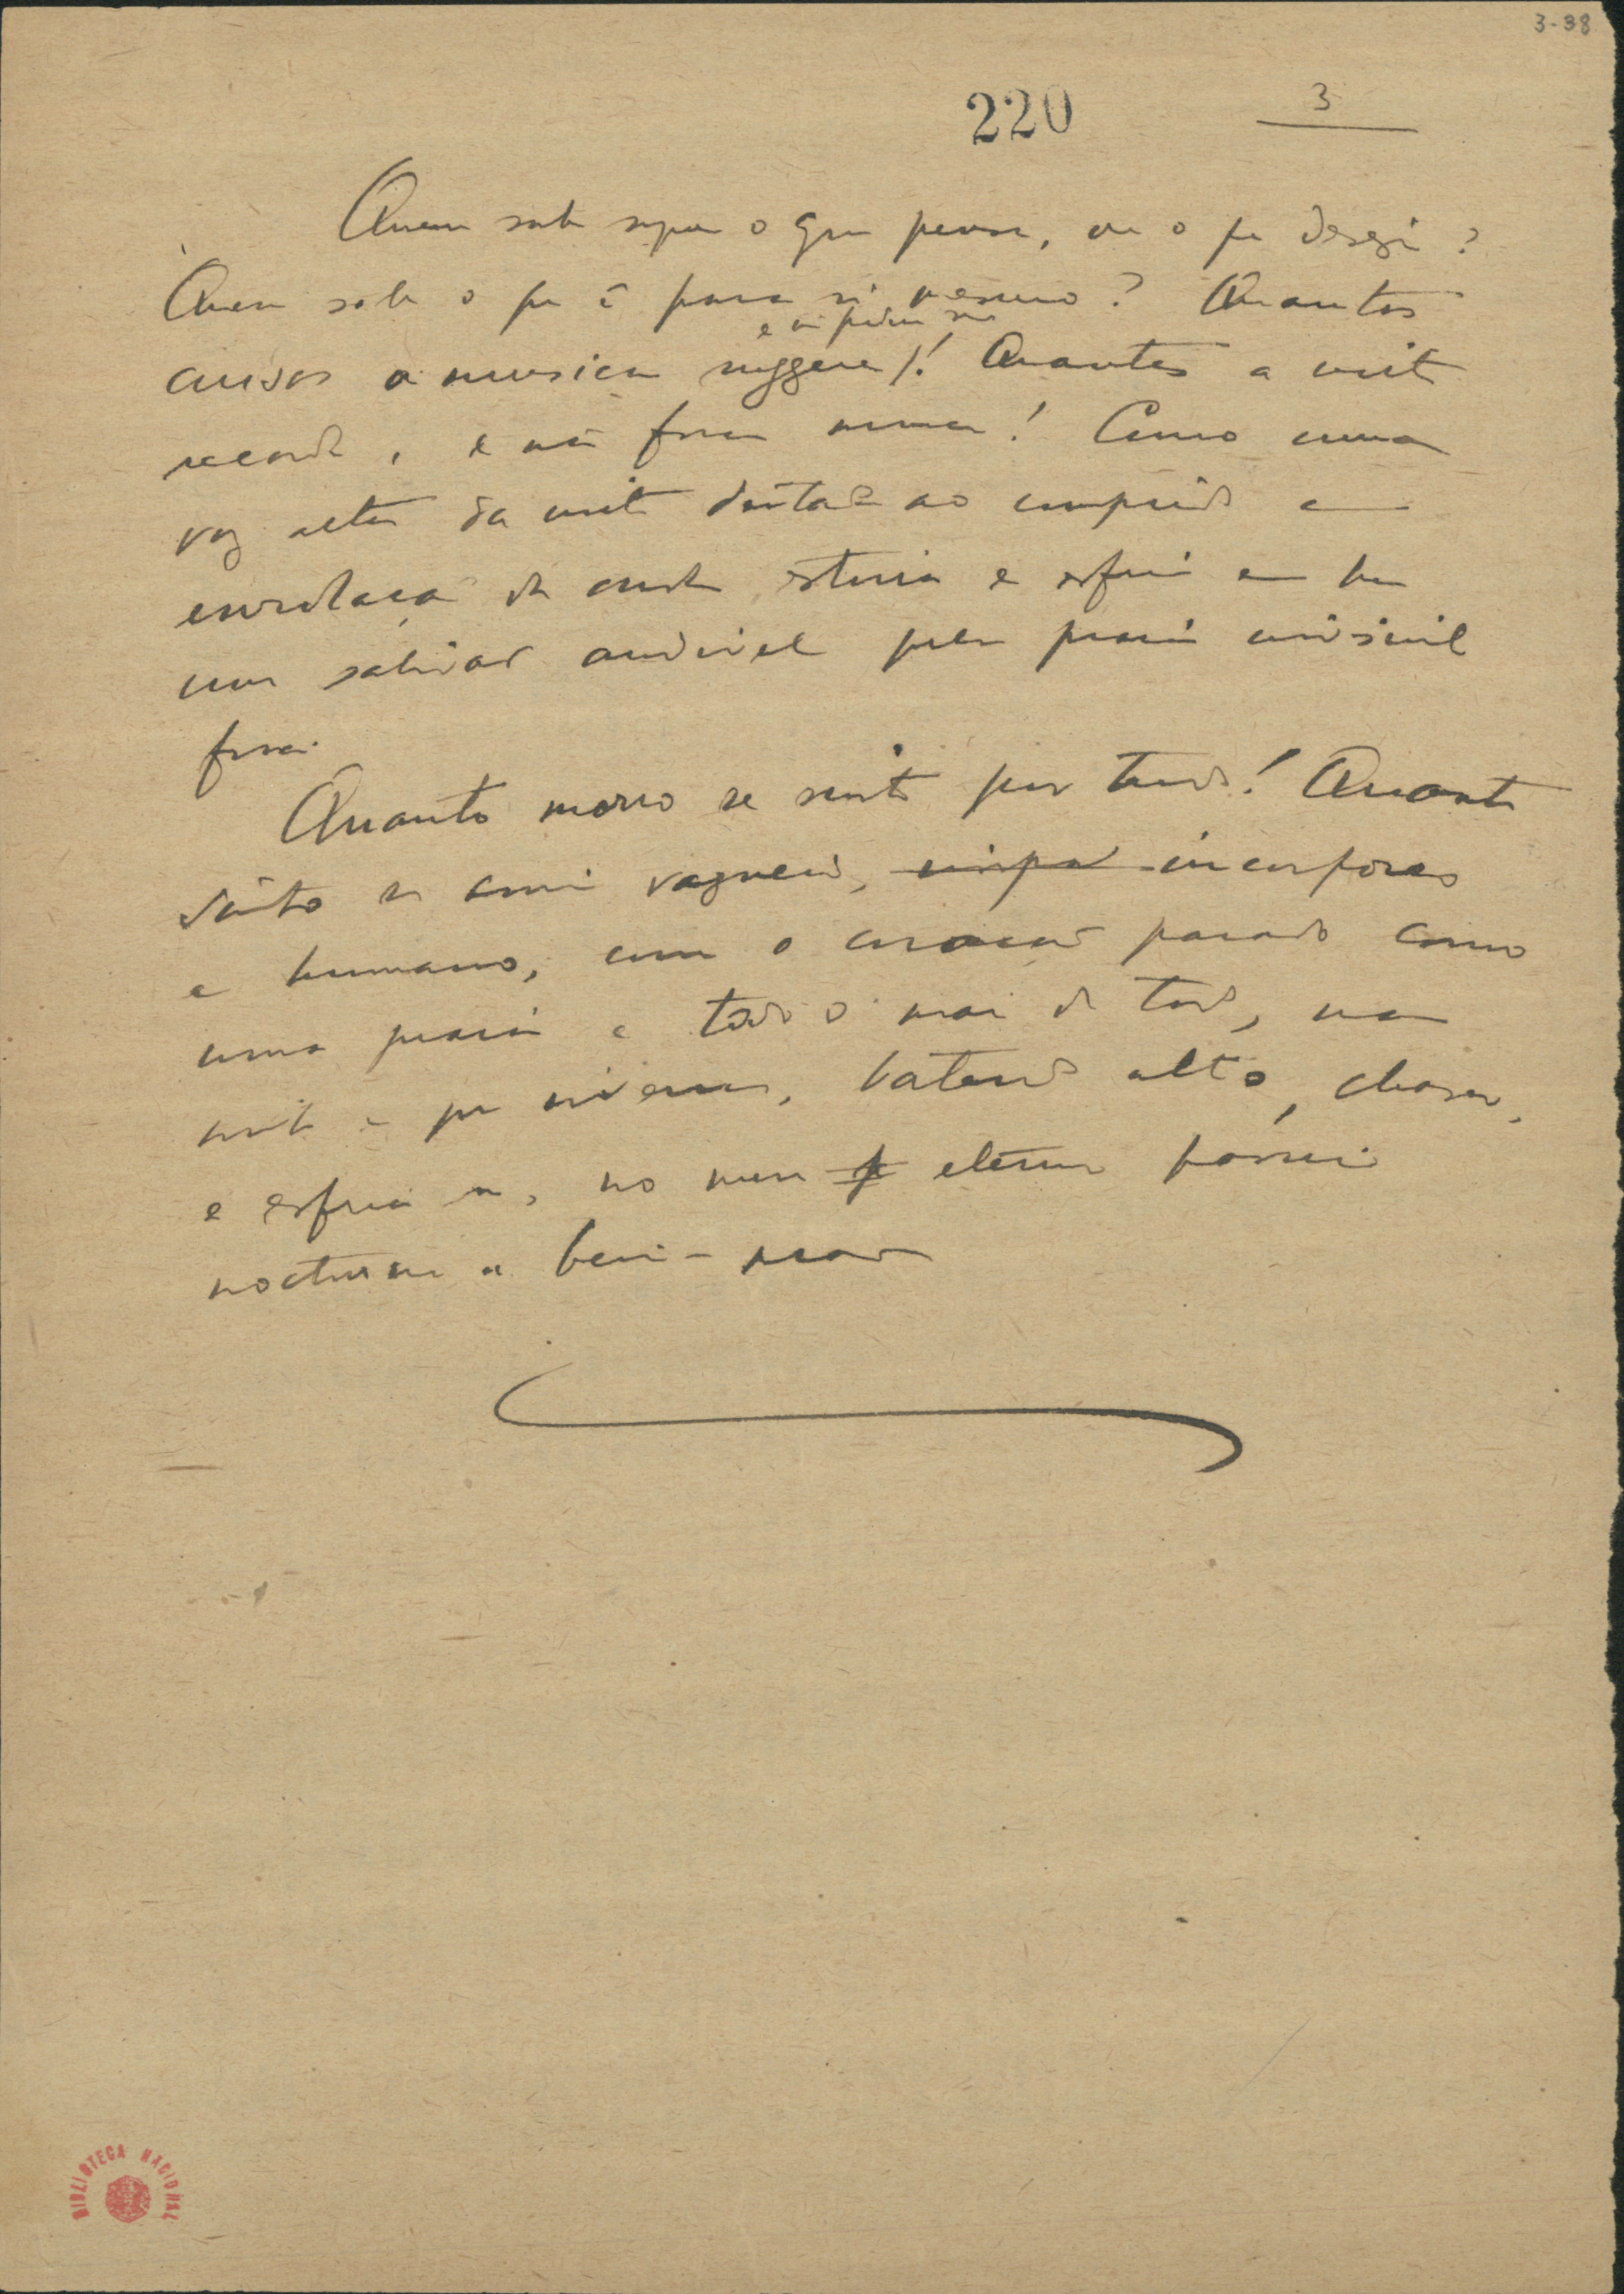 3-38
220
3
Quem sabe sequer o que pensa, ou o que deseja?
Quem sabe o que é para si mesmo? Quantas
coisas a musica suggere /!  Quantas a noite
recorda, e não foram nunca! Como uma
voz alta da noite ao comprido
da onda estoira e esfria
um salivar audivel pela praia invisivel
fora.
Quanto morro se sinto por tudo! Quanto
sinto se assim vagueio, incorporeo
e humano, com o coração parado como
uma praia e todo o mar de tudo, na
noite em que vivemos, batendo alto, chasco,
e esfria-se, no meu eterno passeio
nocturno à beira-mar
BIBLIOTECA NACIONAL